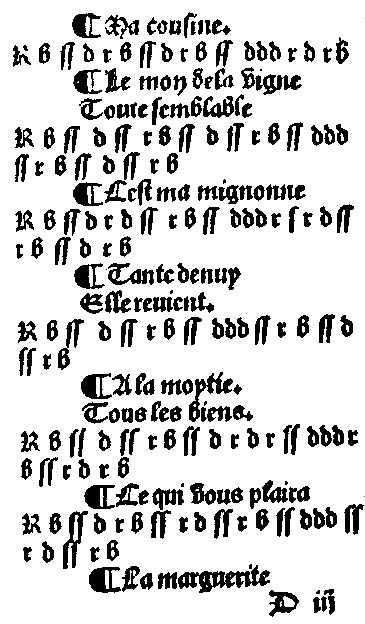 ¶ Ma couſine.
R b ſſ d r b ſſ d r b ſſ ddd r d r b
¶ Le moy dela vigne
Toute ſemblable
R b ſſ d ſſ r b ſſ d ſſ r b ſſ ddd
ſſ r b ſſ d ſſ r b
¶ Ceſt ma mignonne
R b ſſ d r d ſſ r b ſſ ddd r ſ r d ſſ
r b ſſ d r b
¶ Tante denuy
Elle reuient.
R b ſſ d ſſ r b ſſ ddd ſſ r b ſſ d
ſſ r b
¶ A la moytie.
Tous les biens.
R b ſſ d ſſ r b ſſ d r d r ſſ ddd r
b ſſ r d r b
¶ Ce qui vous plaira
R b ſſ d r b ſſ r d ſſ r b ſſ ddd ſſ
r d ſſ r b
¶ La marguerite
D iij